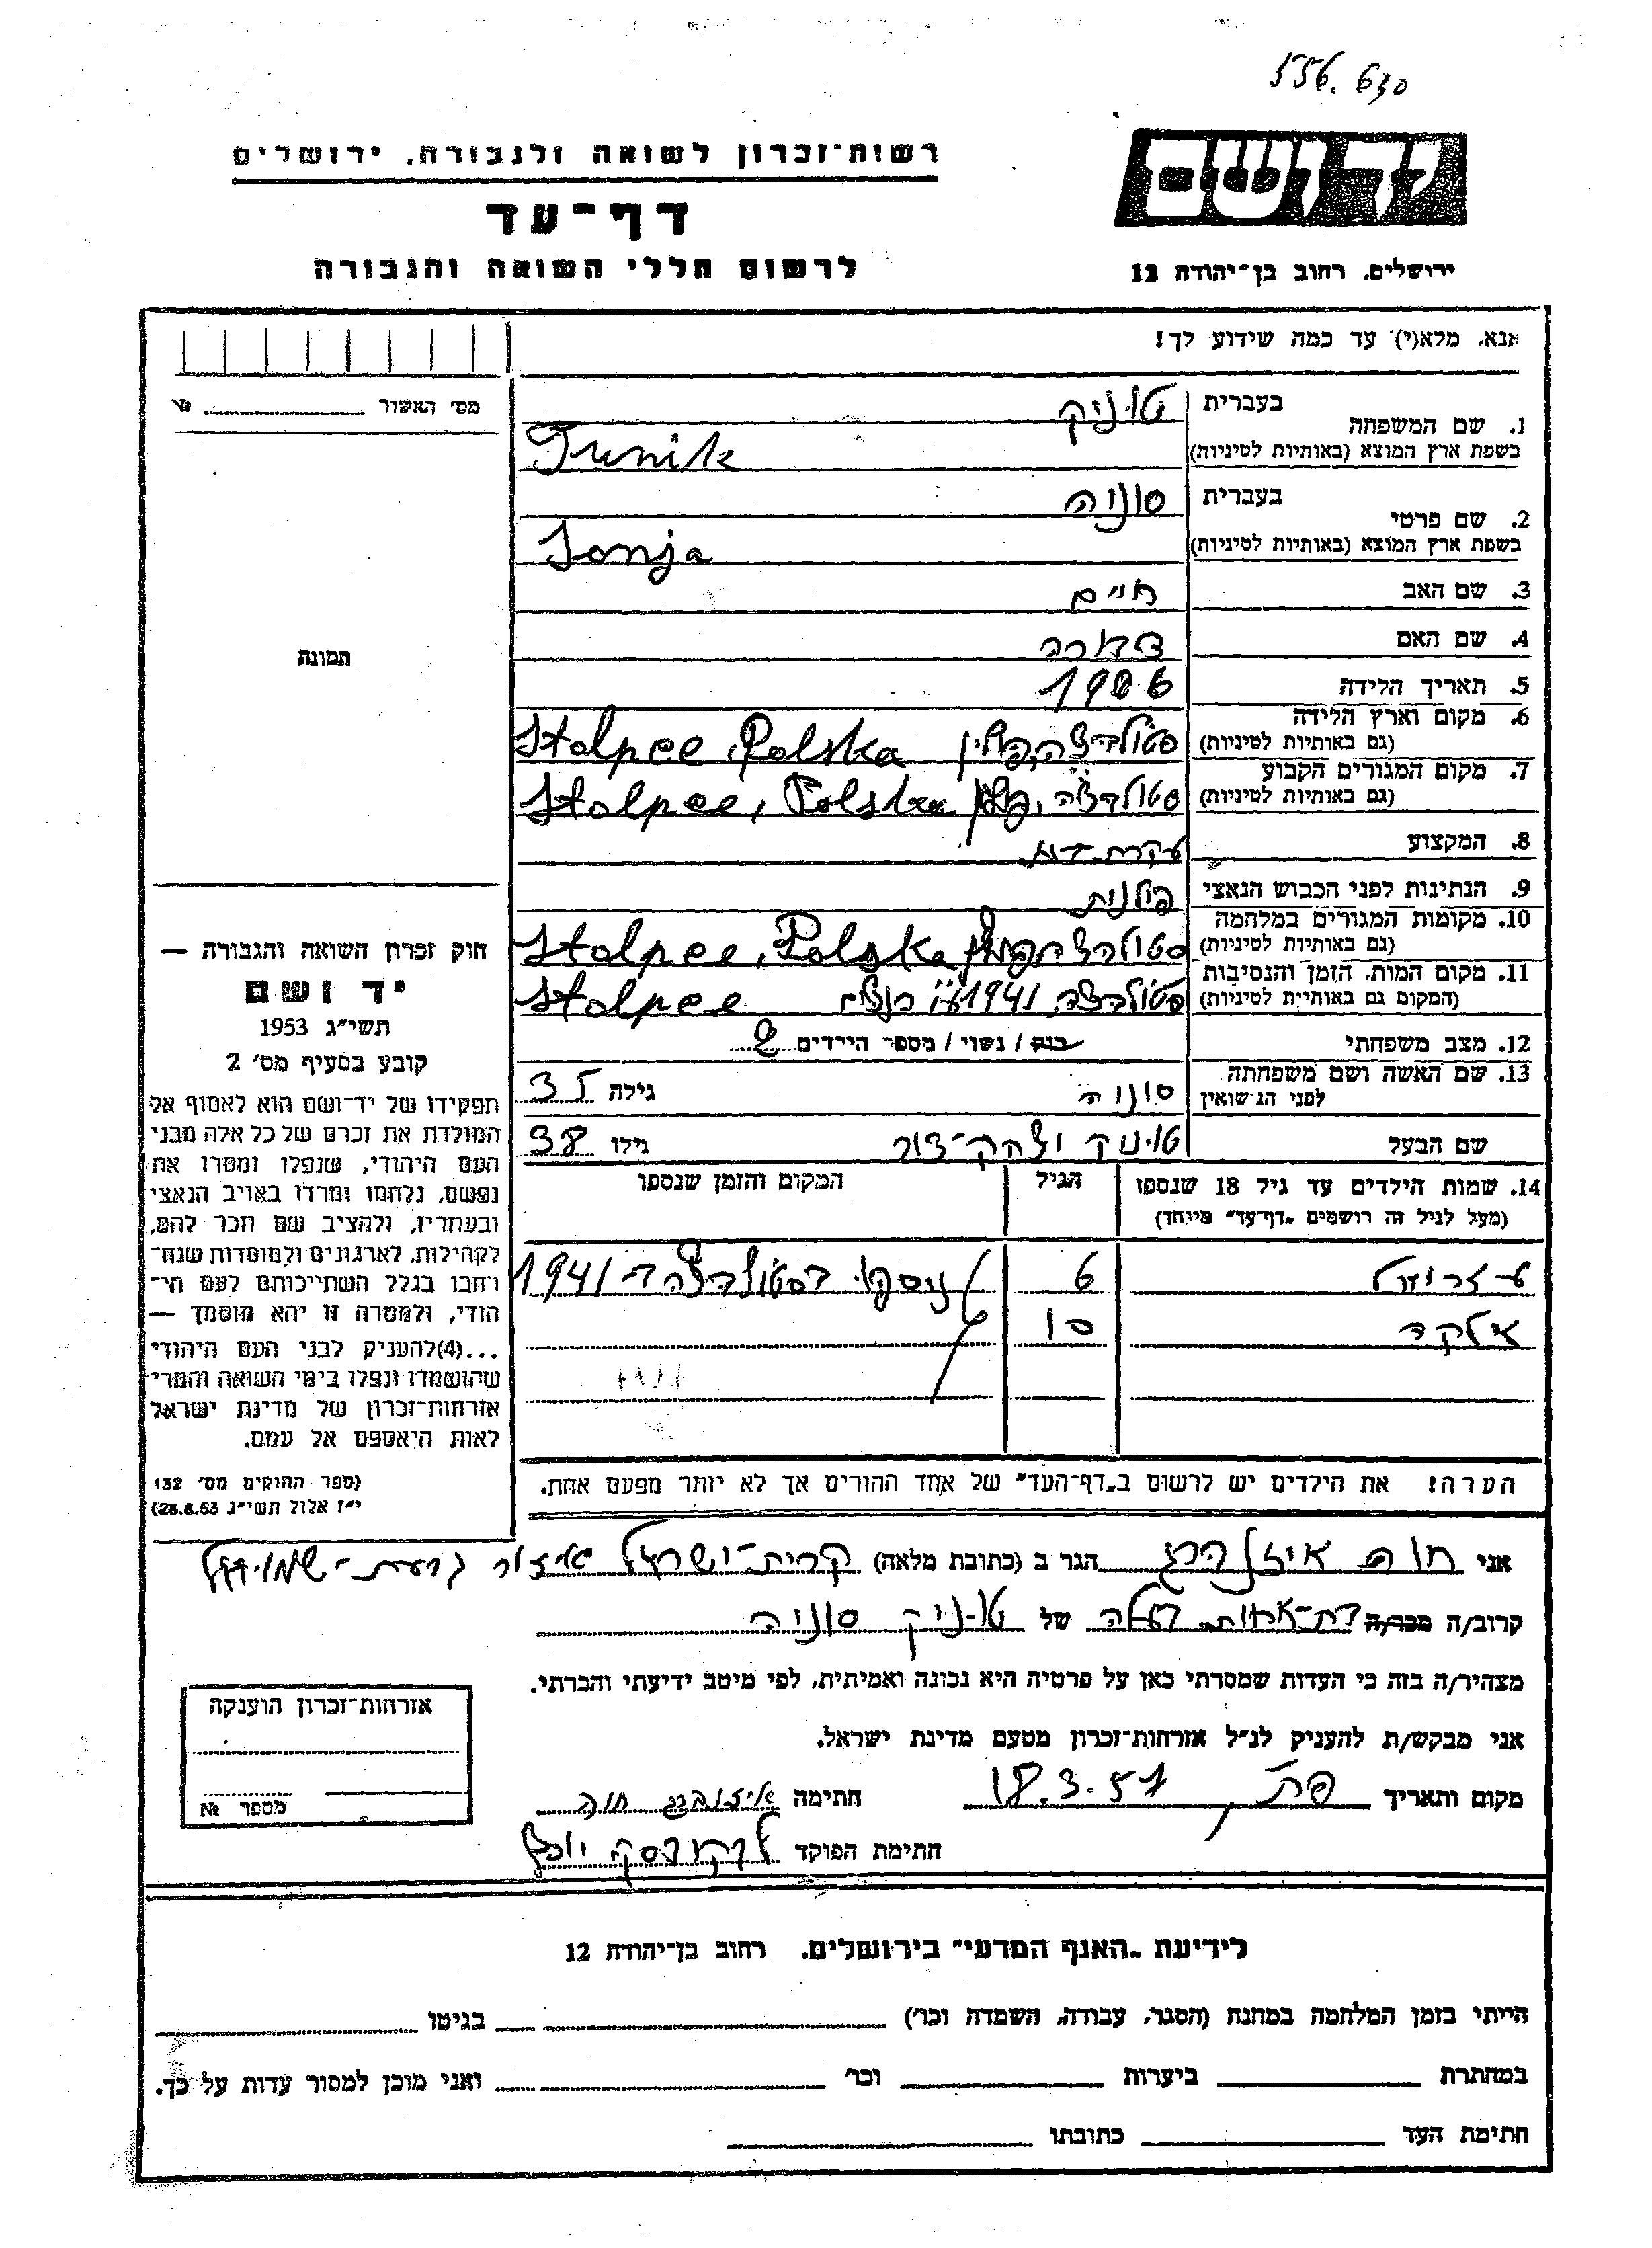 556.630
רשות־זכרון לשואה ולגבורה. ירושלים
יד ושם
דף־עד
לרשום חללי השואה והגבורה
ירושלים. רחוב בן־יהודה 12
אנא, מלא(י) עד כמה שידוע לך!
מס׳ האשור
1. שם המשפחה
בעברית טוניק
בשפת ארץ המוצא (באותיות לטיניות) Tunik
2. שם פרטי
בעברית סוניה
בשפת ארץ המוצא (באותיות לטיניות) Sonja
3. שם האב חיים
4. שם האם דבורה
5. תאריך הלידה 1906
6. מקום וארץ הלידה
(גם באותיות לטיניות) סטולבצה, פולין Stolpce, Polska
7. מקום המגורים הקבוע
(גם באותיות לטיניות) סטולבצה, פולין Stolpce, Polska
8. המקצוע עקרת בית
9. הנתינות לפני הכבוש הנאצי פולנית
10. מקומות המגורים במלחמה
(גם באותיות לטיניות) סטולבצה פולין Stolpce, Polska
11. מקום המות, הזמן והנסיבות
(המקום גם באותיות לטיניות) סטולבצה, 1941 ע״י הנאצים Stolpce
12. מצב משפחתי רוק / נשוי / מספר הילדים 2
13. שם האשה ושם משפחתה
לפני הנישואין סוניה גילה 35
שם הבעל טוניק יצחק־ גילו 38
14. שמות הילדים עד גיל 18 שנספו הגיל המקום והזמן שנספו
(מעל לגיל זה רושמים „דף־עד״ מיוחד)
עזריאל 6 נספו בסטולבצה ב־1941
10
הערה! את הילדים יש לרשום ב„דף־העד״ של אחד ההורים אך לא יותר מפעם אחת.
תמונה
חוק זכרון השואה והגבורה —
יד ושם
תשי״ג 1953
קובע בסעיף מס׳ 2
תפקידו של יד־ושם הוא לאסוף אל
המולדת את זכרם של כל אלה מבני
העם היהודי, שנפלו ומסרו את
נפשם, נלחמו ומרדו באויב הנאצי
ובעוזריו, ולהציב שם וזכר להם,
לקהילות, לארגונים ולמוסדות שנח־
רבו בגלל השתייכותם לעם הי־
הודי, ולמטרה זו יהא מוסמך —
...(4)להעניק לבני העם היהודי
שהושמדו ונפלו בימי השואה והמרי
אזרחות־זכרון של מדינת ישראל
לאות היאספם אל עמם.
(ספר החוקים מס׳ 132
י״ז אלול תשי״ג 28.8.53)
אני חוה איזנברג הגר ב (כתובת מלאה) קרית־ישראל אזור גבעת־שמואל
קרוב/ה מכר/ה בת־אחות בעלה של טוניק סוניה
מצהיר/ה בזה כי העדות שמסרתי כאן על פרטיה היא נכונה ואמיתית, לפי מיטב ידיעתי והכרתי.
אני מבקש/ת להעניק לנ״ל אזרחות־זכרון מטעם מדינת ישראל.
מקום ותאריך פ״ת, 18.3.57 חתימה איזנברג חוה
חתימת הפוקד
אזרחות־זכרון הוענקה
מספר №
לידיעת „האגף המדעי״ בירושלים. רחוב בן־יהודה 12
הייתי בזמן המלחמה במחנה (הסגר, עבודה, השמדה וכו׳) בגיטו
במחתרת ביערות וכו׳ ואני מוכן למסור עדות על כך.
חתימת העד כתובתו